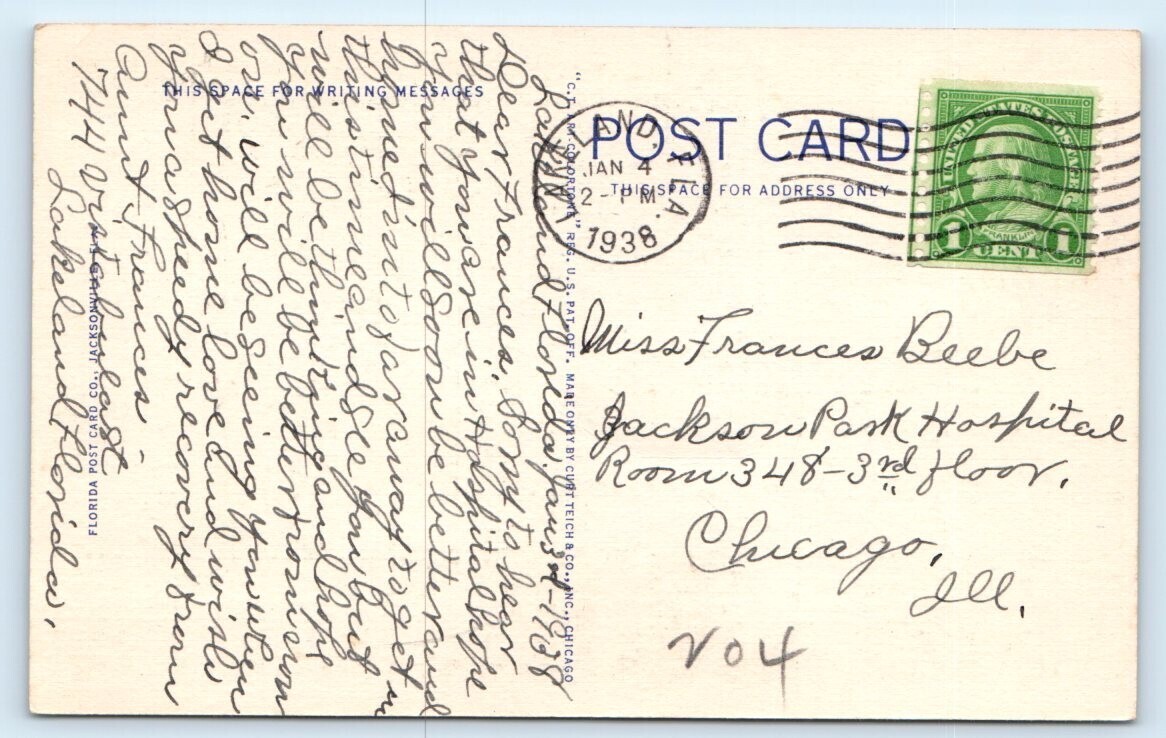 POST CARD
THIS SPACE FOR WRITING MESSAGES
THIS SPACE FOR ADDRESS ONLY
LAKELAND, FLA.
JAN 4
2 - PM
1938
UNITED STATES POSTAGE
FRANKLIN
1 CENT 1
"C.T. ART-COLORTONE" REG. U.S. PAT. OFF. MADE ONLY BY CURT TEICH & CO., INC., CHICAGO
FLORIDA POST CARD CO., JACKSONVILLE
Lakeland Florida Jan 3rd-1938
Dear Frances, Sorry to hear
that you are in Hospital hope
you will soon be better and
home. into far away to get in
this time and see you but
will be thinking and hope
you will be better from now
on. will be seeing you when
I get home love and wish
you a speedy recovery from
Aunt Frances -
744 Vistabula st.
Lakeland Florida.
Miss Frances Beebe
Jackson Park Hospital
Room 348 - 3rd floor.
Chicago,
Ill.
V04